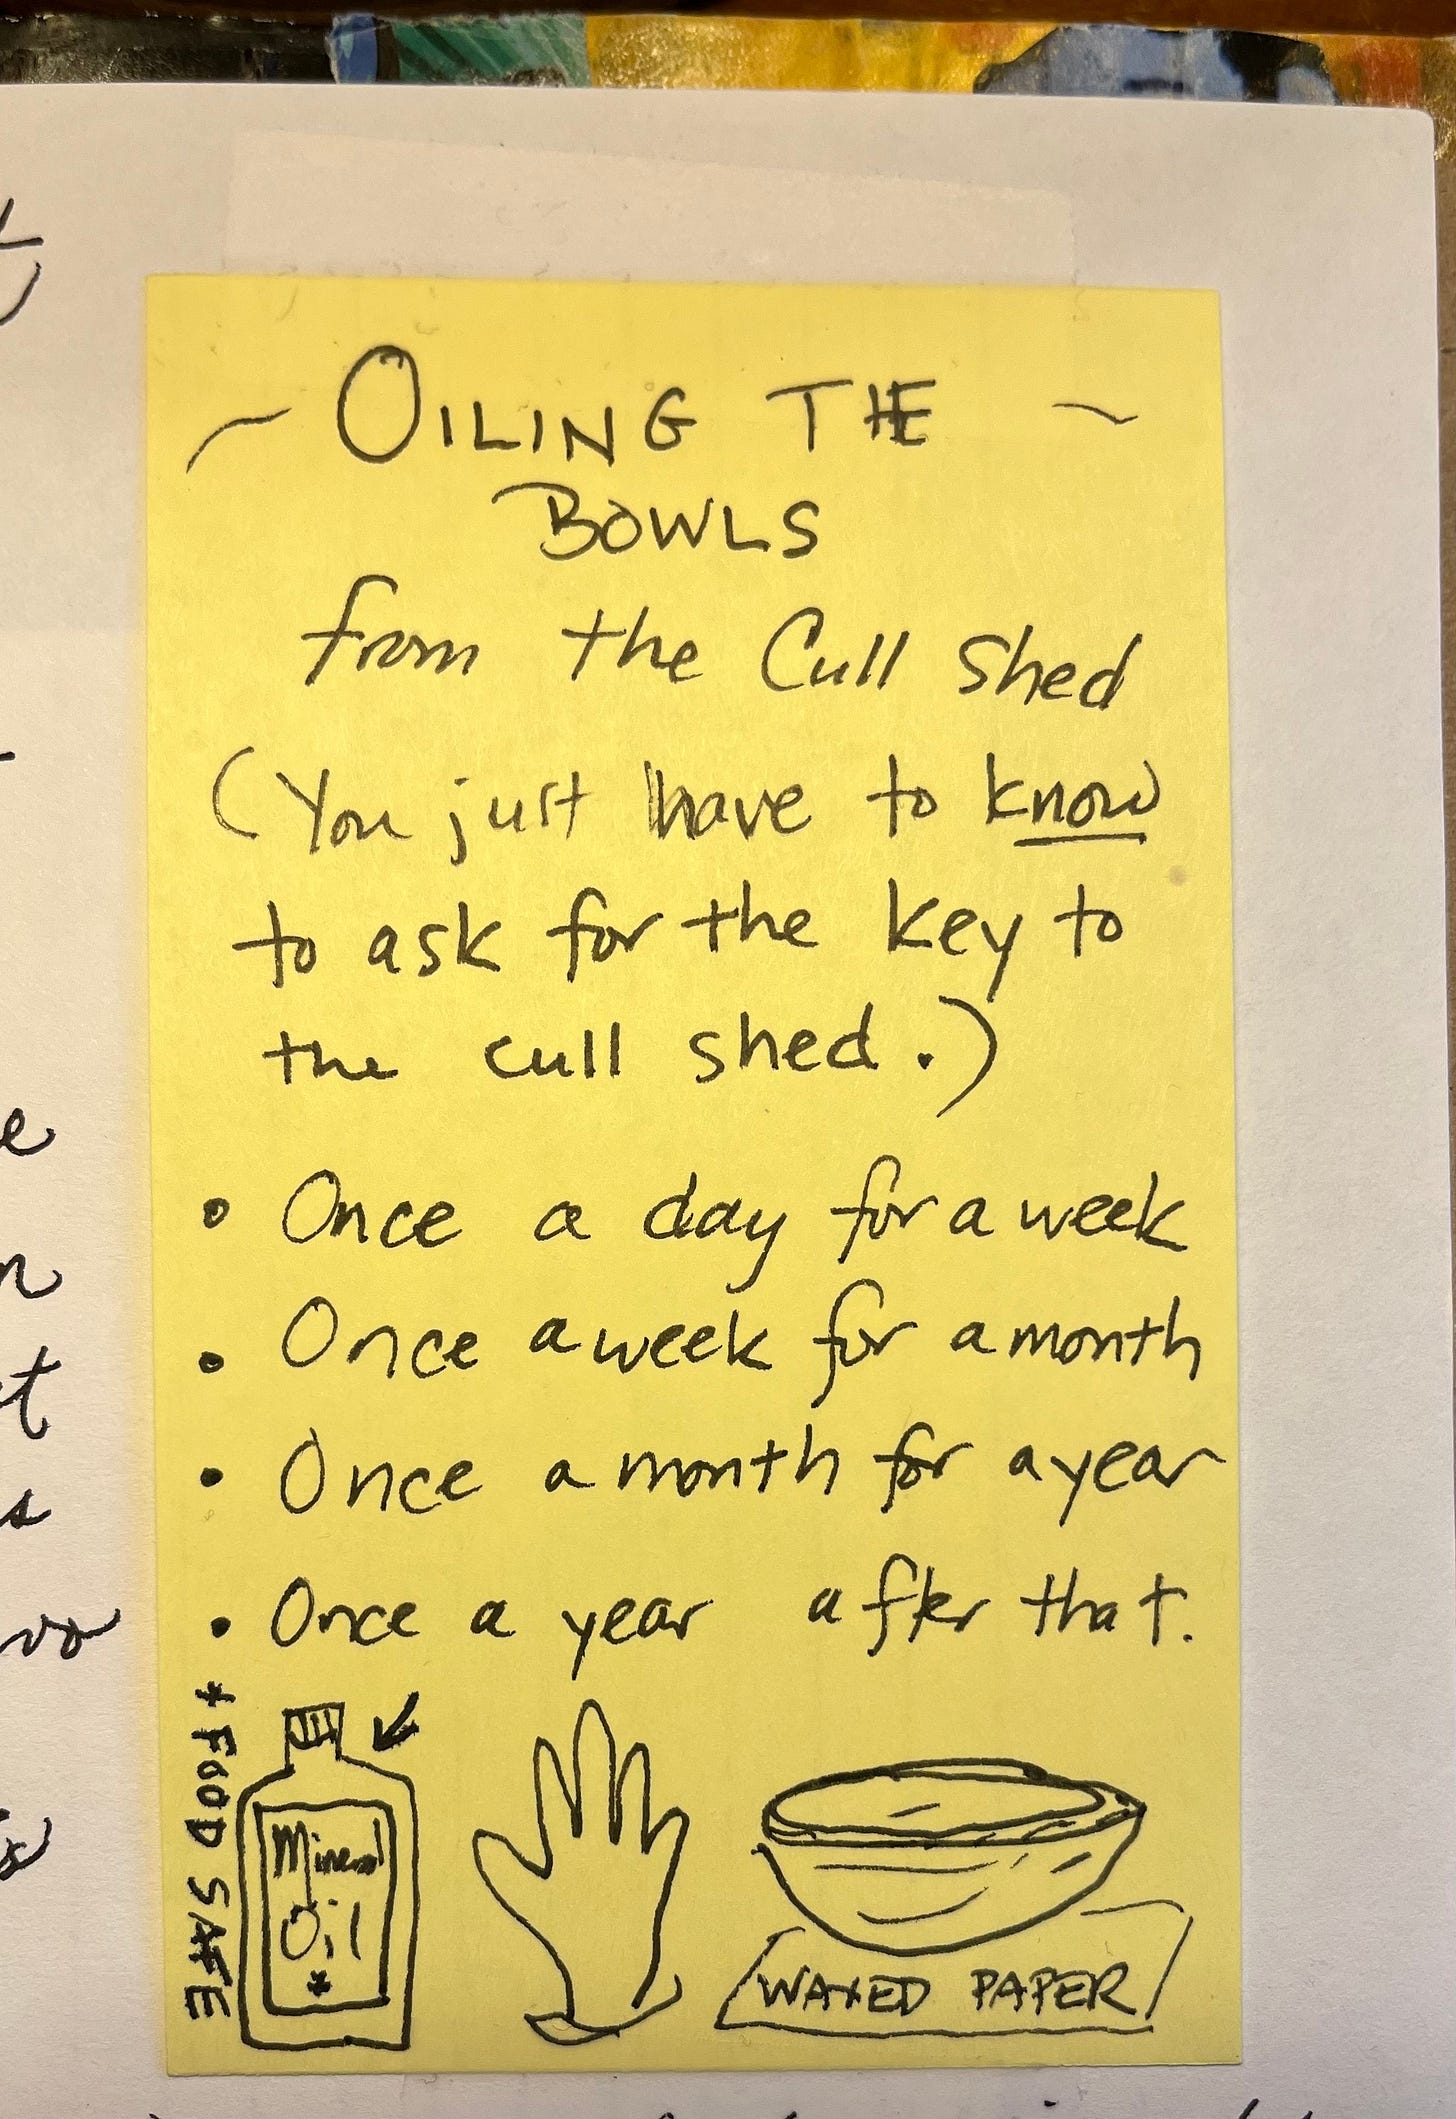 ~ OILING THE ~
BOWLS
from the Cull Shed
(You just have to know
to ask for the key to
the cull shed.)
• Once a day for a week
• Once a week for a month
• Once a month for a year
• Once a year after that.
* FOOD SAFE
Mineral
Oil
*
WAXED PAPER